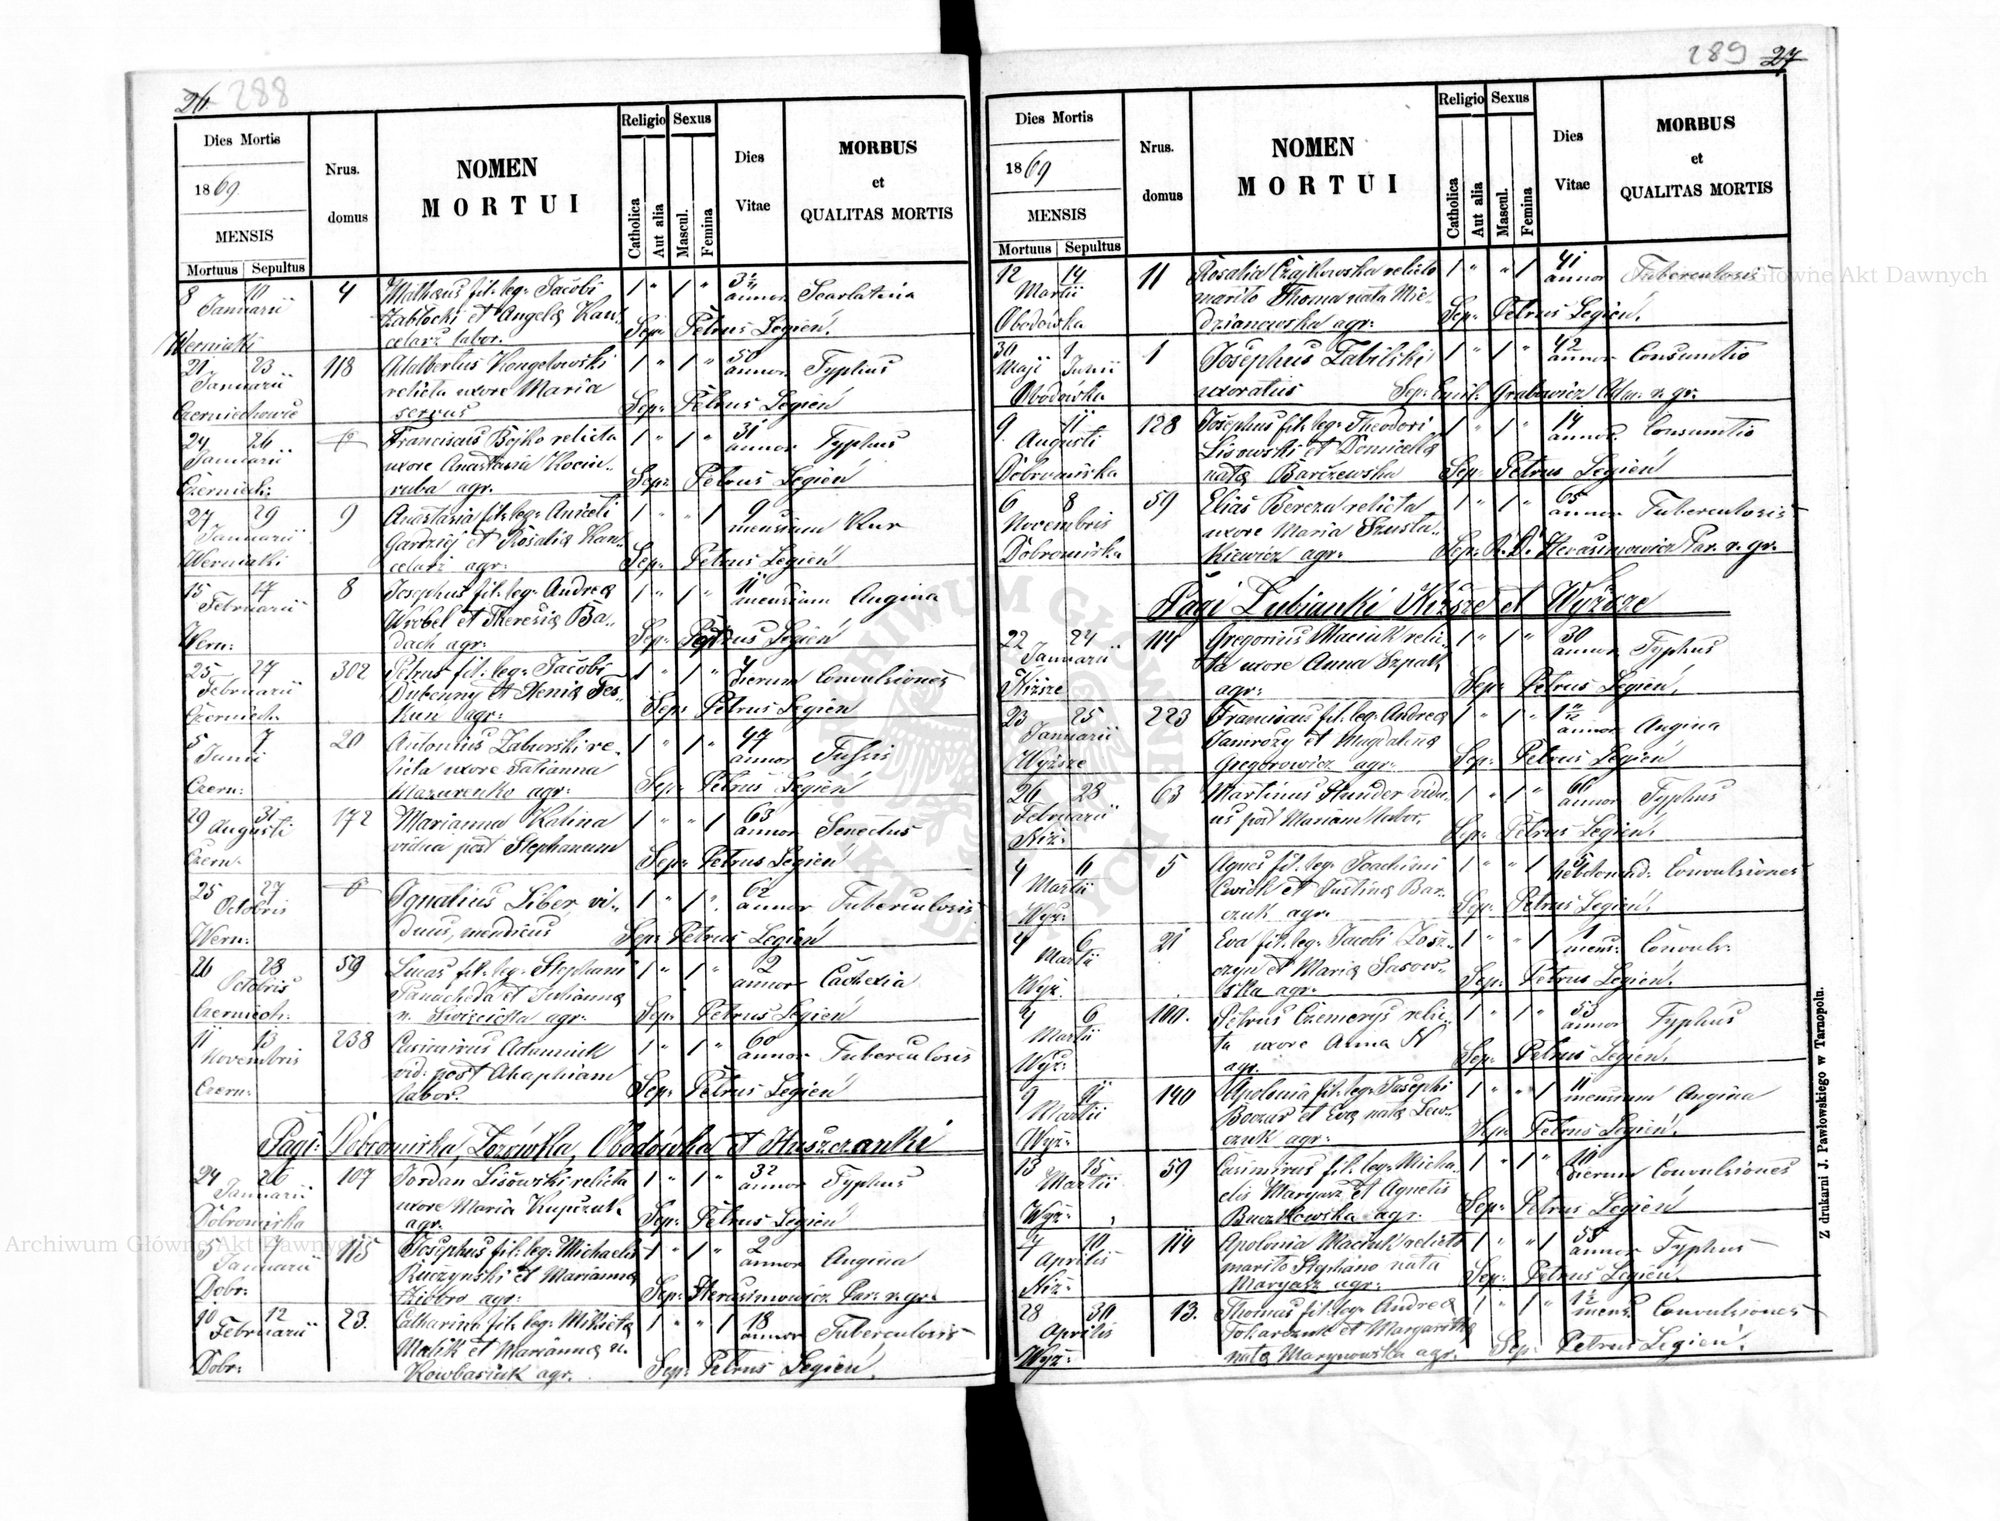 26 288
Dies Mortis
1869
MENSIS
Mortuus Sepultus
Nrus. domus
NOMEN
MORTUI
Religio
Catholica
Aut alia
Sexus
Mascul.
Femina
Dies Vitae
MORBUS
et
QUALITAS MORTIS
8 10 4 Mathaus fil: leg: Jacobi 1 " 1 " 3½ Scarlatina
Januarii Zabłocki et Angela Kan- annor
Werniaki celarz labor. Sep: Petrus Legień.
21 23 118 Adalbertus Kongelowski 1 " 1 " 50 Typhus
Januarii relicta uxore Maria annor
Czerniechowce servus Sep: Petrus Legień
24 26 Franciscus Bojko relicta 1 " 1 " 31 Typhus
Januarii uxore Anastasia Kociu- annor
Czerniech: ruba agr. Sep: Petrus Legień
27 29 9 Anastasia fil: leg: Aniceti 1 " " 1 9 Kur
Januarii Gardzij et Rosalia Kan- mensium
Werniaki celarz agr: Sep: Petrus Legień
15 17 8 Josephus fil: leg: Andrea 1 " 1 " 11 Angina
Februarii Wrobel et Theresia Ba- mensium
Wern: dach agr: Sep: Petrus Legień
25 27 302 Petrus fil: leg: Jacobi 1 " 1 " 4 Convulsiones
Februarii Dubenny et Xenia Fes- dierum
Czerniech. kun agr: Sep: Petrus Legień
5 7 20 Antonius Zaburski re- 1 " 1 " 47 Tussis
Junii licta uxore Tatianna annor
Czern: Mazurenko agr: Sep: Petrus Legień
29 31 172 Marianna Kalina 1 " " 1 63 Senectus
Augusti vidua post Stephanum annor
Czern: Sep: Petrus Legień
25 27 Ignatius Siber vi- 1 " 1 " 62 Tuberculosis
Octobris duus, mendicus annor
Wern: Sep: Petrus Legień
26 28 59 Lucas fil: leg: Stephani 1 " 1 " 2 Cachexia
Octobris Panacheda et Julianna annor
Czerniech: n. agr: Sep: Petrus Legień
11 13 238 Casimirus Adamiuk 1 " 1 " 60 Tuberculosis
Novembris vid: post Ahaphiam annor
Czern: labor. Sep: Petrus Legień
Pagi: Dobromirka, Łozówka, Obodówka et Hłuszczanki
24 26 107 Jordan Lisowski relicta 1 " 1 " 32 Typhus
Januarii uxore Maria Kupczak annor
Dobromirka agr: Sep: Petrus Legień
5 7 115 Josephus fil: leg: Michaelis 1 " 1 " 2 Angina
Januarii Ruczynski et Marianna annor
Dobr: Dziobro agr: Sep: Herasimowicz Par: r: gr:
10 12 23. Catharina fil: leg: Mikieta 1 " " 1 18 Tuberculosis
Februarii Malik et Marianna n. annor
Dobr: Kowbasiuk agr. Sep: Petrus Legień.
289 27
Dies Mortis
1869
MENSIS
Mortuus Sepultus
Nrus. domus
NOMEN
MORTUI
Religio
Catholica
Aut alia
Sexus
Mascul.
Femina
Dies Vitae
MORBUS
et
QUALITAS MORTIS
12 14 11 Rosalia Czajkowska relicto 1 " " 1 41 Tuberculosis
Martii marito Thoma nata Mie- annor
Obodówka dzianowska agr: Sep: Petrus Legień.
30 1 1 Josephus Zabilski 1 " 1 " 42 Consumtio
Maji Junii uxoratus annor
Obodówka Sep: Emil: Grabowicz Adm. r. gr.
9 11 128 Josephus fil: leg: Theodori 1 " 1 " 14 Consumtio
Augusti Lisowski et Domicela annor.
Dobromirka nata Barczewska Sep: Petrus Legień
6 8 59 Elias Bereza relicta 1 " 1 " 65 Tuberculosis
Novembris uxore Maria Szusta- annor
Dobromirka kiewicz agr: Sep: R. D. Herasimowicz Par. r. gr.
Pagi Łubianki Niższe et Wyższe
22 24 114 Gregorius Maciuk relic- 1 " 1 " 30 Typhus
Januarii ta uxore Anna Szpak annor
Niższe agr: Sep: Petrus Legień.
23 25 223 Franciscus fil: leg: Andrea 1 " 1 " Angina
Januarii Jamrozy et Magdalena annor
Wyższe Gregorowicz agr: Sep: Petrus Legień
26 28 63 Martinus Hunder vidu- 1 " 1 " 66 Typhus
Februarii us post Mariam labor. annor
Niż: Sep: Petrus Legień.
4 6 5 Agnes fil: leg: Joachimi 1 " " 1 5 Convulsiones
Martii Cwiok et Justina Bar- hebdomad:
Wyż: czuk agr. Sep: Petrus Legień.
4 6 21 Eva fil: leg: Jacobi Łosz- 1 " " 1 1 Convuls:
Martii czyn et Maria Sasow- mens:
Wyż. ska agr: Sep: Petrus Legień.
4 6 100. Petrus Czemerys relic- 1 " 1 " 55 Typhus
Martii ta uxore Anna N annor
Wyż: agr. Sep: Petrus Legień.
9 11 140 Apolonia fil: leg: Josephi 1 " " 1 11 Angina
Martii Boczar et Eva nata Lew- mensium
Wyż: czuk agr: Sep: Petrus Legień.
13 15 59 Casimirus fil: leg: Micha- 1 " 1 " 10 Convulsiones
Martii elis Maryasz et Agnetis dierum
Wyż: Buczkowska agr. Sep: Petrus Legień
7 10 114 Apolonia Maciuk relicto 1 " " 1 55 Typhus
Aprilis marito Stephano nata annor
Niż: Maryasz agr: Sep: Petrus Legień.
28 30 13. Thomas fil: leg: Andrea 1 " 1 " 1½ Convulsiones
Aprilis Tokarczuk et Margaritha mens:
Wyż: nata Marynowska agr. Sep: Petrus Legień.
Z drukarni J. Pawłowskiego w Tarnopolu.
Archiwum Główne Akt Dawnych
Archiwum Główne Akt Dawnych
ARCHIWUM GŁÓWNE AKT DAWNYCH